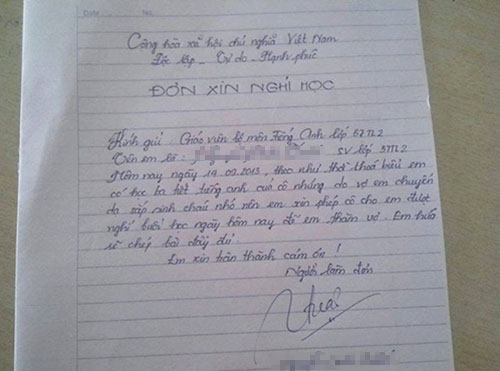 Date No.
Cộng hòa xã hội chủ nghĩa Việt Nam
Độc lập - Tự do - Hạnh phúc
ĐƠN XIN NGHỈ HỌC
Kính gửi : Giáo viên bộ môn Tiếng Anh lớp 57TL2
Tên em là : SV lớp 57TL2
Hôm nay ngày 19.02.2013, theo như thời thoá biểu em
có học ba tiết tiếng anh của cô nhưng do vợ em chuyển
dạ sắp sinh cháu nhỏ nên em xin phép cô cho em được
nghỉ buổi học ngày hôm nay để em thăm vợ. Em hứa
sẽ chép bài đầy đủ.
Em xin trân thành cám ơn !
Người làm đơn